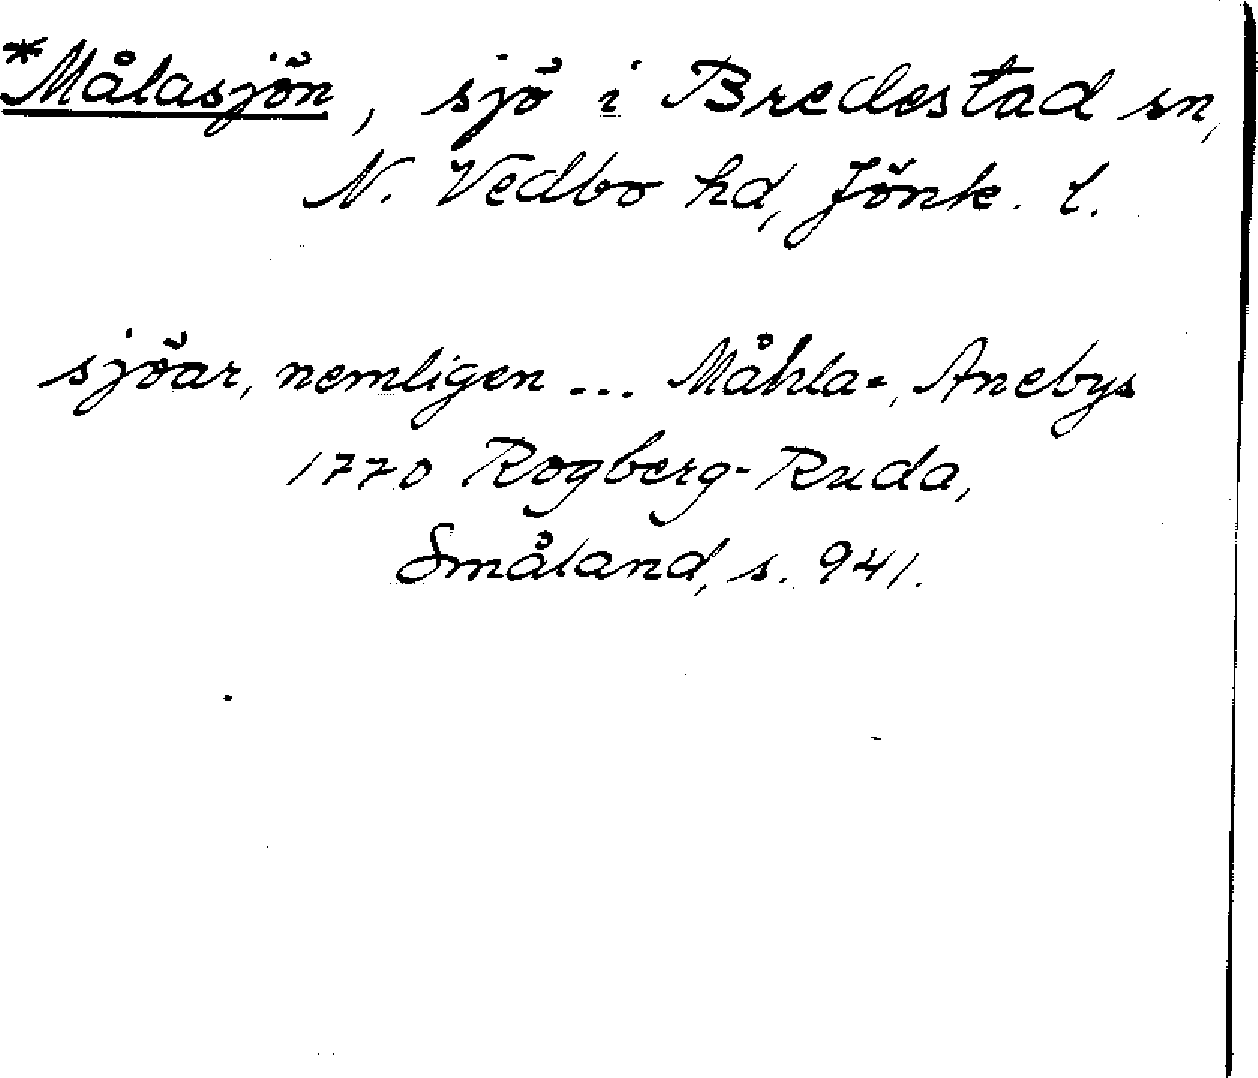 *Målasjön, sjö i Bredestad sn,
N. Vedbo hd, Jönk. l.
sjöar, nemligen ... Måhla-, Anebys
1770 Rogberg-Ruda,
Småland, s. 941.